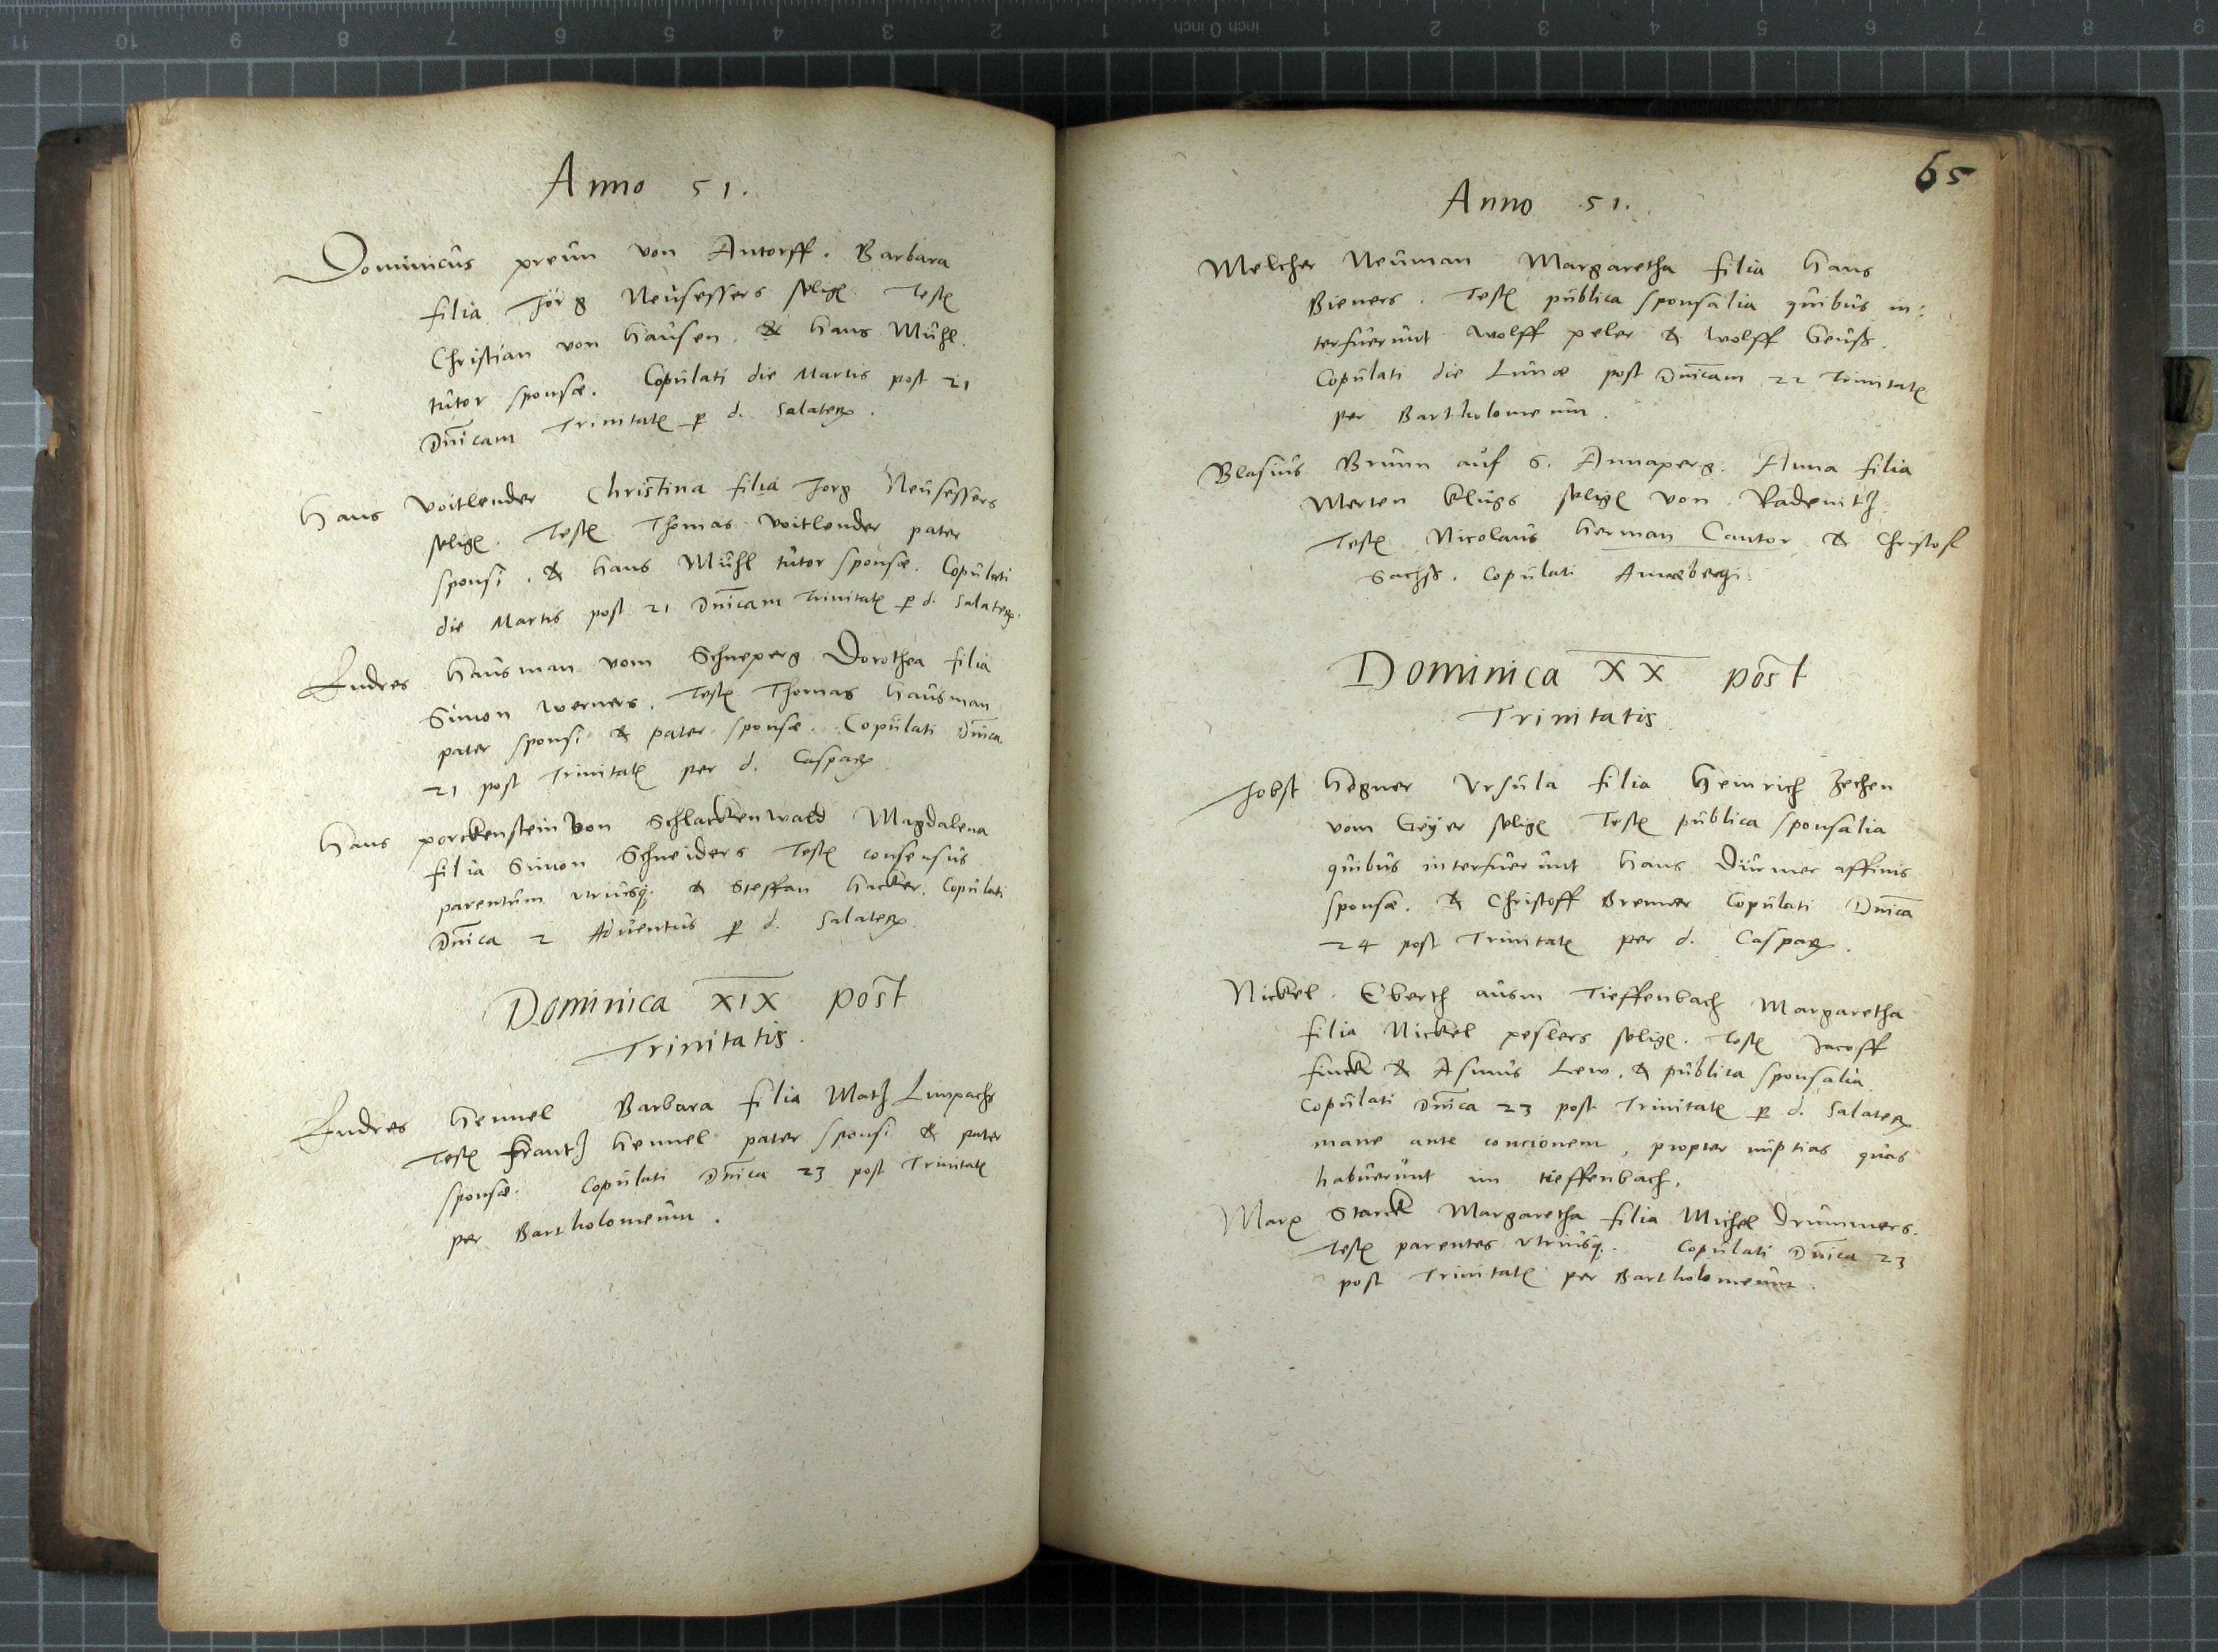 Anno 51.
Dominicus preun von Antorff. Barbara
filia Jörg Neusessers selig. Test
Christian von Hausen. & Hans Mühl.
tutor sponsæ. Copulati die Martis post 21
Dnicam Trinitat p d. Salater.
Hans Voitlender Christina filia Jorg Neusessers
selig. Test Thomas Voitlender pater
sponsi. & Hans Mühl tutor sponsæ. Copulati
die Martis post 21 Dnicam Trinitat p d. Salater.
Endres Hausman vom Schneperg Dorothea filia
Simon Werners. Test Thomas Hausman
pater sponsi & pater sponsæ. Copulati Dnica
21 post Trinitat per d. Caspar
Hans porckenstein von Schlackenwald Magdalena
filia Simon Schneiders Test consensus
parentum utriusq. & Steffan Hacker. Copulati
Dnica 2 Adventus p d. Salater
Dominica XIX post
Trinitatis.
Endres Hennel Barbara filia Matz Limpachs
Test Frantz Hennel pater sponsi & pater
sponsæ. Copulati Dnica 23 post Trinitat
per Bartholomeum.
65
Anno 51.
Melcher Neuman Margaretha filia Hans
Bieners. Test publica sponsalia quibus in:
terfuerunt Wolff peler & Wolff Geuß.
Copulati die Lunæ post Dnicam 22 Trinitat
per Bartholomeum.
Blasius Brunn auf S. Annaperg. Anna filia
Merten Klugs selig von Radenitz.
Test Nicolaus Herman Cantor & Christof
Sachß. Copulati Annæbergi.
Dominica XX post
Trinitatis
Jobst Hegner Ursula filia Heinrich Zechen
vom Geyer selig Test publica sponsalia
quibus interfuerunt Hans Dürner affinis
sponsæ. & Christoff Brenner Copulati Dnica
24 post Trinitat per d. Caspar.
Nickel Eberth ausm Tieffenbach Margaretha
filia Nickel peslers selig. Test Jacoff
Finck & Asmus Lew. & publica sponsalia
Copulati Dnica 23 post Trinitat p d. Salater
mane ante concionem, propter nuptias quas
habuerunt im tieffenbach.
Marx Starck Margaretha filia Michel Drummers.
Test parentes utriusq. Copulati Dnica 23
post Trinitat per Bartholomeum.